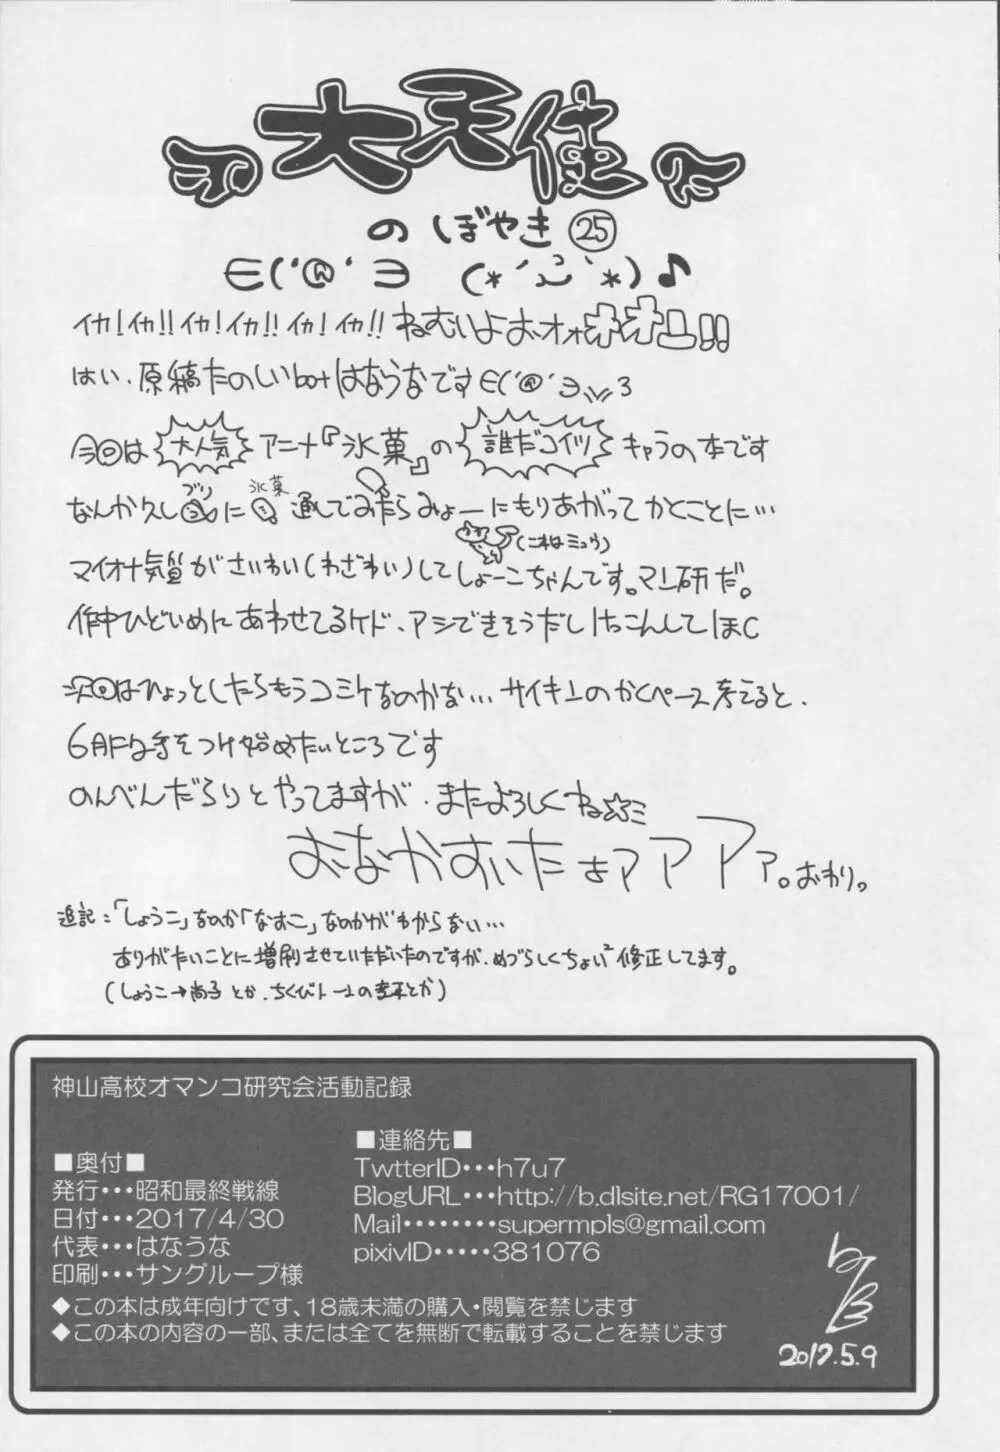 大天使
のぼやき㉕
∈('@'∋ (*´ω`*)♪
イカ!イカ!!イカ!イカ!!イカ!イカ!!ねむいよおオォオオ
はい、原稿たのしいbotはなうなです∈('@'∋ 3
今回は大人気アニメ『氷菓』の誰だコイツキャラの本です
なんか久しブリに氷菓通しでみたらみょーにもりあがってかくことに…
(これはミュウ)
マイオナ気質がさいわい(わざわい)してしょーこちゃんです。マン研だ。
作中ひどいめにあわせてるケド、アシできそうだしけっこんしてほC
次回はひょっとしたらもうコミケなのかな…サイキンのかくペース考えると、
6月に手をつけ始めたいところです
のんべんだらりとやってますが、またよろしくね☆ミ
おなかすいたよアアアァ。おわり。
追記:「しょうこ」なのか「なおこ」なのかがわからない…
ありがたいことに増刷させていただいたのですが、めづらしくちょい²修正してます。
(しょうこ→尚子とか、ちくびトーンの とか)
神山高校オマンコ研究会活動記録
■奥付■
発行・・・昭和最終戦線
日付・・・2017/4/30
代表・・・はなうな
印刷・・・サングループ様
■連絡先■
TwtterID・・・h7u7
BlogURL・・・http://b.dlsite.net/RG17001/
Mail・・・・・・・・supermpls@gmail.com
pixivID・・・・・381076
◆この本は成年向けです、18歳未満の購入・閲覧を禁じます
◆この本の内容の一部、または全てを無断で転載することを禁じます
2017.5.9